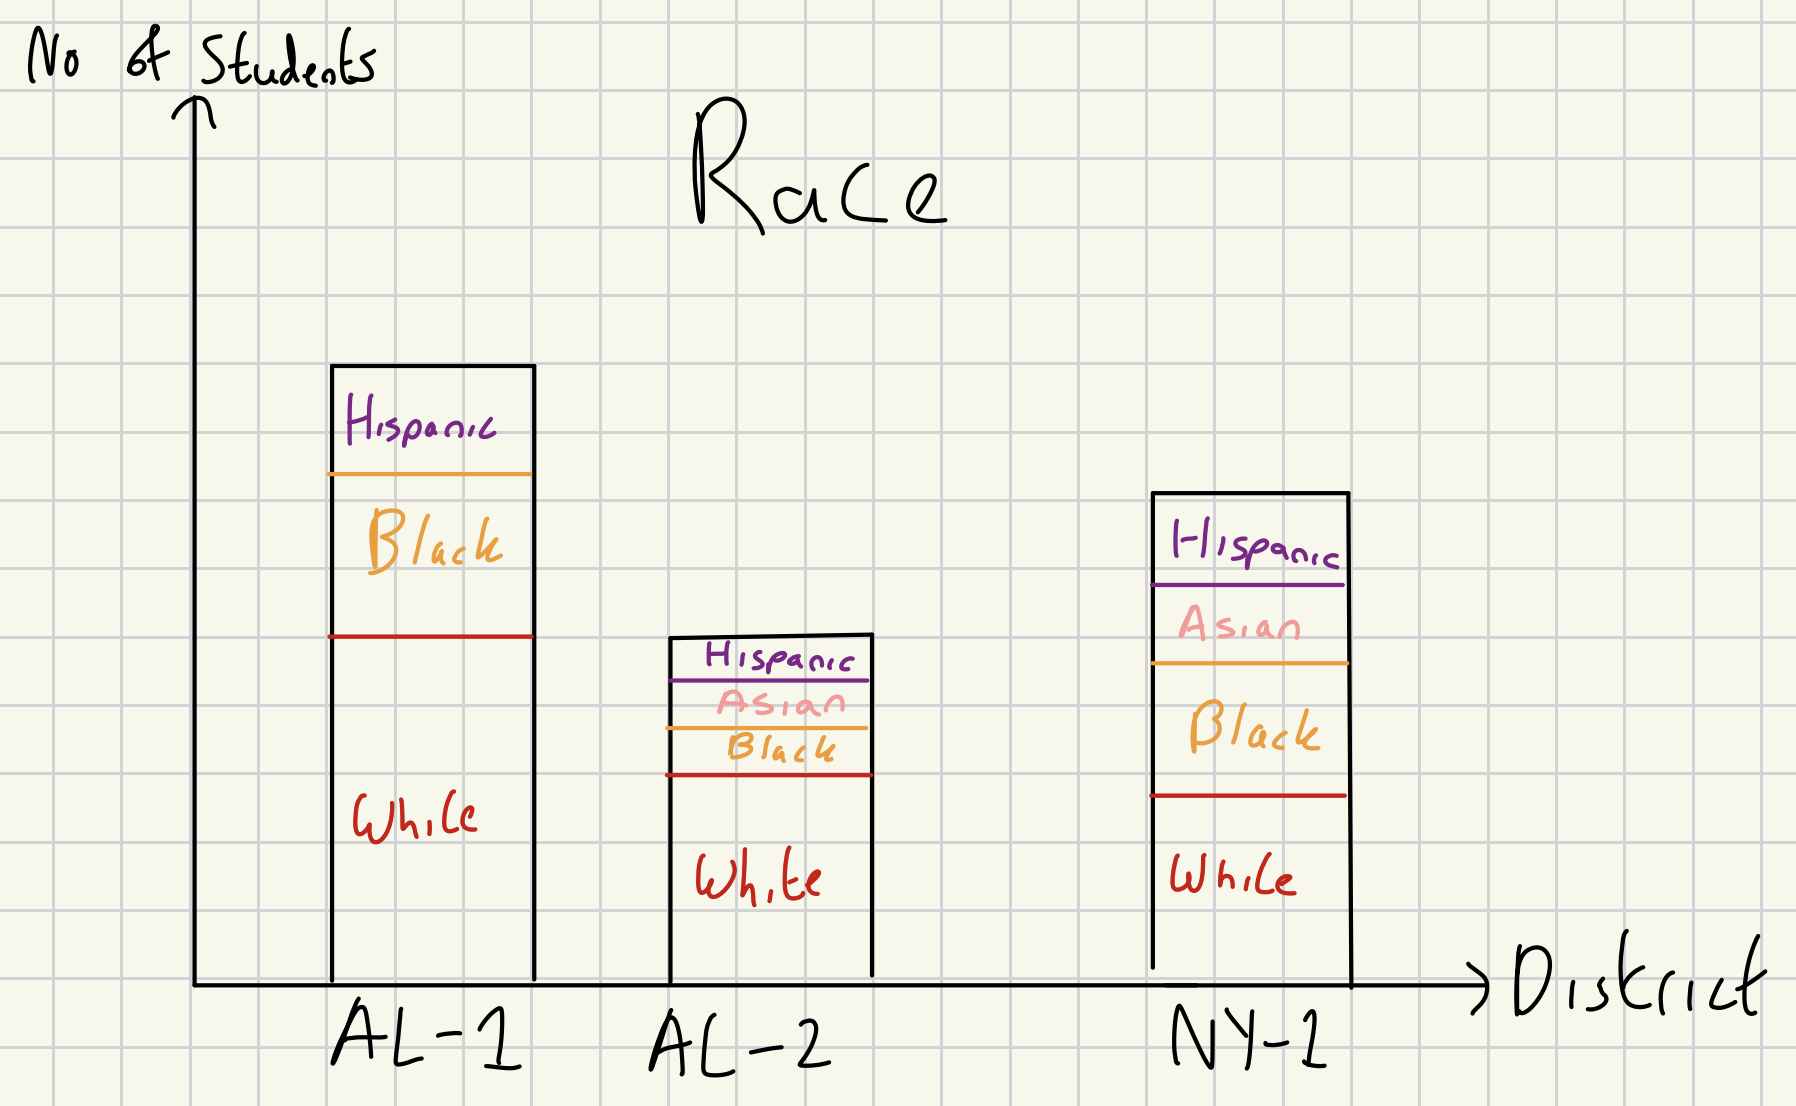 No of Students
Race
Hispanic
Black
White
Hispanic
Asian
Black
White
Hispanic
Asian
Black
White
AL-1
AL-2
NY-1
District